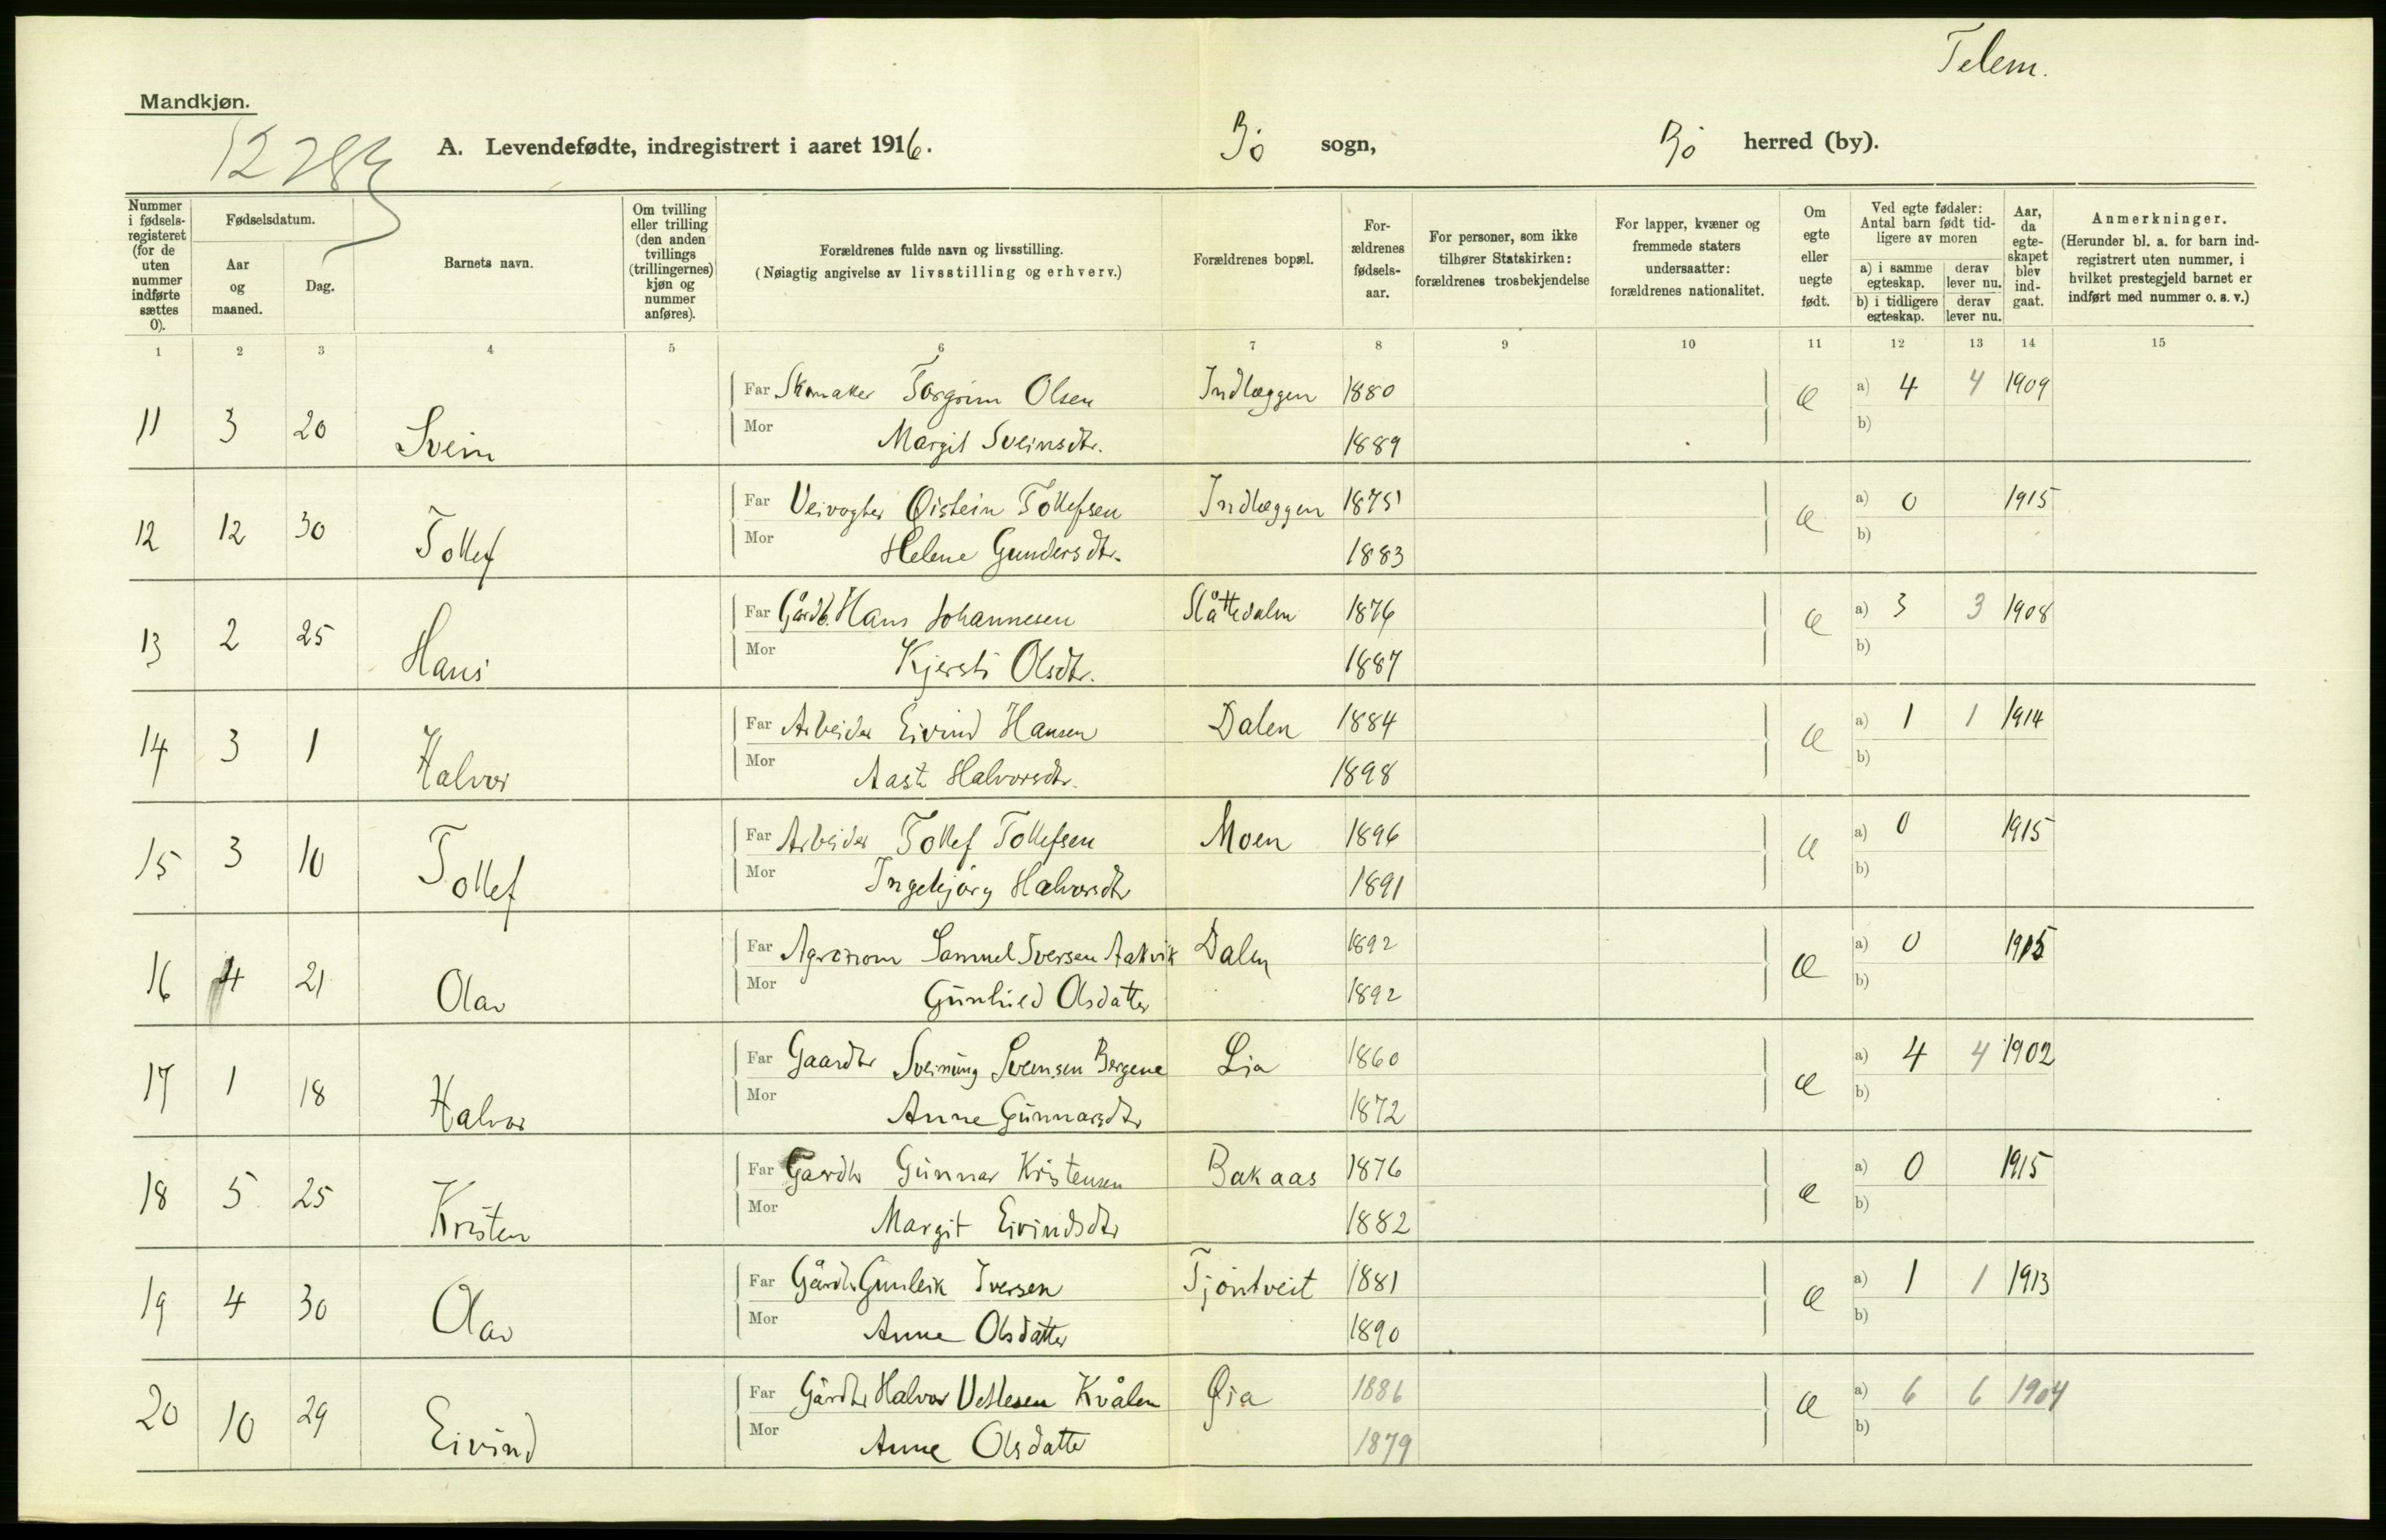 Telem.
Mandkjøn.
A. Levendefødte, indregistrert i aaret 1916. Bö sogn, Bö herred (by).
Nummer i fødselsregisteret (for de uten nummer indførte sættes 0).
Fødselsdatum.
Aar og maaned.
Dag.
Barnets navn.
Om tvilling eller trilling (den anden tvillings (trillingernes) kjøn og nummer anføres).
Forældrenes fulde navn og livsstilling.
(Nøiagtig angivelse av livsstilling og erhverv.)
Forældrenes bopæl.
Forældrenes fødselsaar.
For personer, som ikke tilhører Statskirken: forældrenes trosbekjendelse
For lapper, kvæner og fremmede staters undersaatter: forældrenes nationalitet.
Om egte eller uegte født.
Ved egte fødsler: Antal barn født tidligere av moren
a) i samme egteskap. derav lever nu.
b) i tidligere egteskap. derav lever nu.
Aar, da egteskapet blev indgaat.
Anmerkninger.
(Herunder bl. a. for barn indregistrert uten nummer, i hvilket prestegjeld barnet er indført med nummer o. s. v.)
1 2 3 4 5 6 7 8 9 10 11 12 13 14 15
11 3 20 Svein Far Skomaker Torgrim Olsen Indlæggen 1880 Æ a) 4 4 1909
Mor Margit Sveinsdtr. 1889 b)
12 12 30 Tollef Far Veivogter Øistein Tollefsen Indlæggen 1875 Æ a) 0 1915
Mor Helene Gundersdtr. 1883 b)
13 2 25 Hans Far Gårdb. Hans Johannesen Slåttedalen 1876 Æ a) 3 3 1908
Mor Kjersti Olsdtr. 1887 b)
14 3 1 Halvor Far Arbeider Eivind Hansen Dalen 1884 Æ a) 1 1 1914
Mor Aaste Halvorsdtr. 1898 b)
15 3 10 Tollef Far Arbeider Tollef Tollefsen Moen 1896 Æ a) 0 1915
Mor Ingebjörg Halvorsdtr 1891 b)
16 4 21 Olav Far Agronom Samuel Iversen Aakvik Dalen 1892 Æ a) 0 1915
Mor Gunhild Olsdatter 1892 b)
17 1 18 Halvor Far Gaardbr Sveinung Sveinsen Bergene Lia 1860 Æ a) 4 4 1902
Mor Anne Gunnarsdtr 1872 b)
18 5 25 Kristen Far Gardbr Gunnar Kristensen Bakaas 1876 Æ a) 0 1915
Mor Margit Eivindsdtr 1882 b)
19 4 30 Olav Far Gårdbr Gunleik Iversen Tjöntveit 1881 Æ a) 1 1 1913
Mor Anne Olsdatter 1890 b)
20 10 29 Eivind Far Gårdbr Halvor Vetlesen Kvålen Øia 1886 Æ a) 6 6 1904
Mor Anne Olsdatter 1879 b)